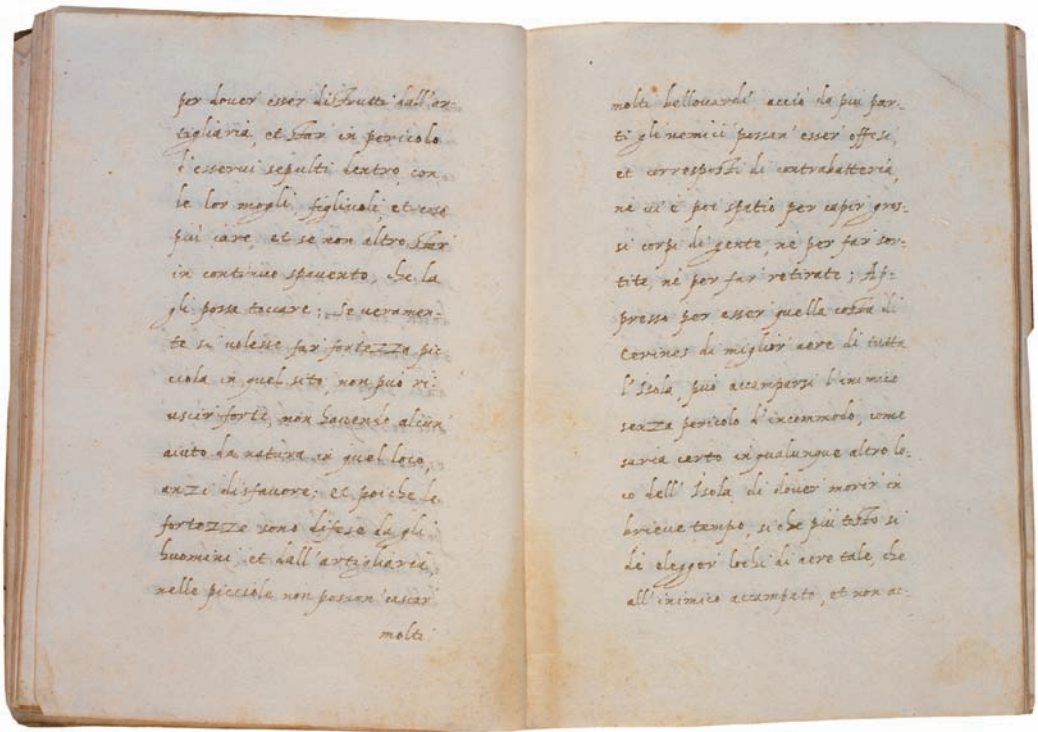 per douer esser distrutti dall'ar-
tigliaria, et star in pericolo
d'esserui sepulti dentro con
le lor mogli, figliuoli, et cose
più care, et se non altro star
in continuo spauento, che la
gli posse toccare; Se ueramen-
te si uolesse far fortezza pic-
ciola in quel sito, non può ri-
uscir forte, non hauendo alcun
aiuto da natura in quel loco,
anzi disfauore; et poiche le
fortezze sono difese da gli
huomini, et dall'artigliaria,
nelle picciole non posson' cascar
molti
molti bellouardi acciò da più par-
ti gli nemici possan' esser offesi,
et corrisposti di contrabatteria,
ne ui è poi spatio per capir gros-
si corpi di gente, ne per far sor-
tite, ne per far retirate; Ap-
presso per esser quella costa di
Cerines da miglior aere di tutta
l'Isola, può accamparsi l'inimico
senza pericolo d'incommodo, come
saria certo in qualunque altro lo-
co dell'Isola di douer morir in
brieue tempo, si che più tosto si
de elegger lochi di aere tale, che
all'inimico accampato, et non ac-